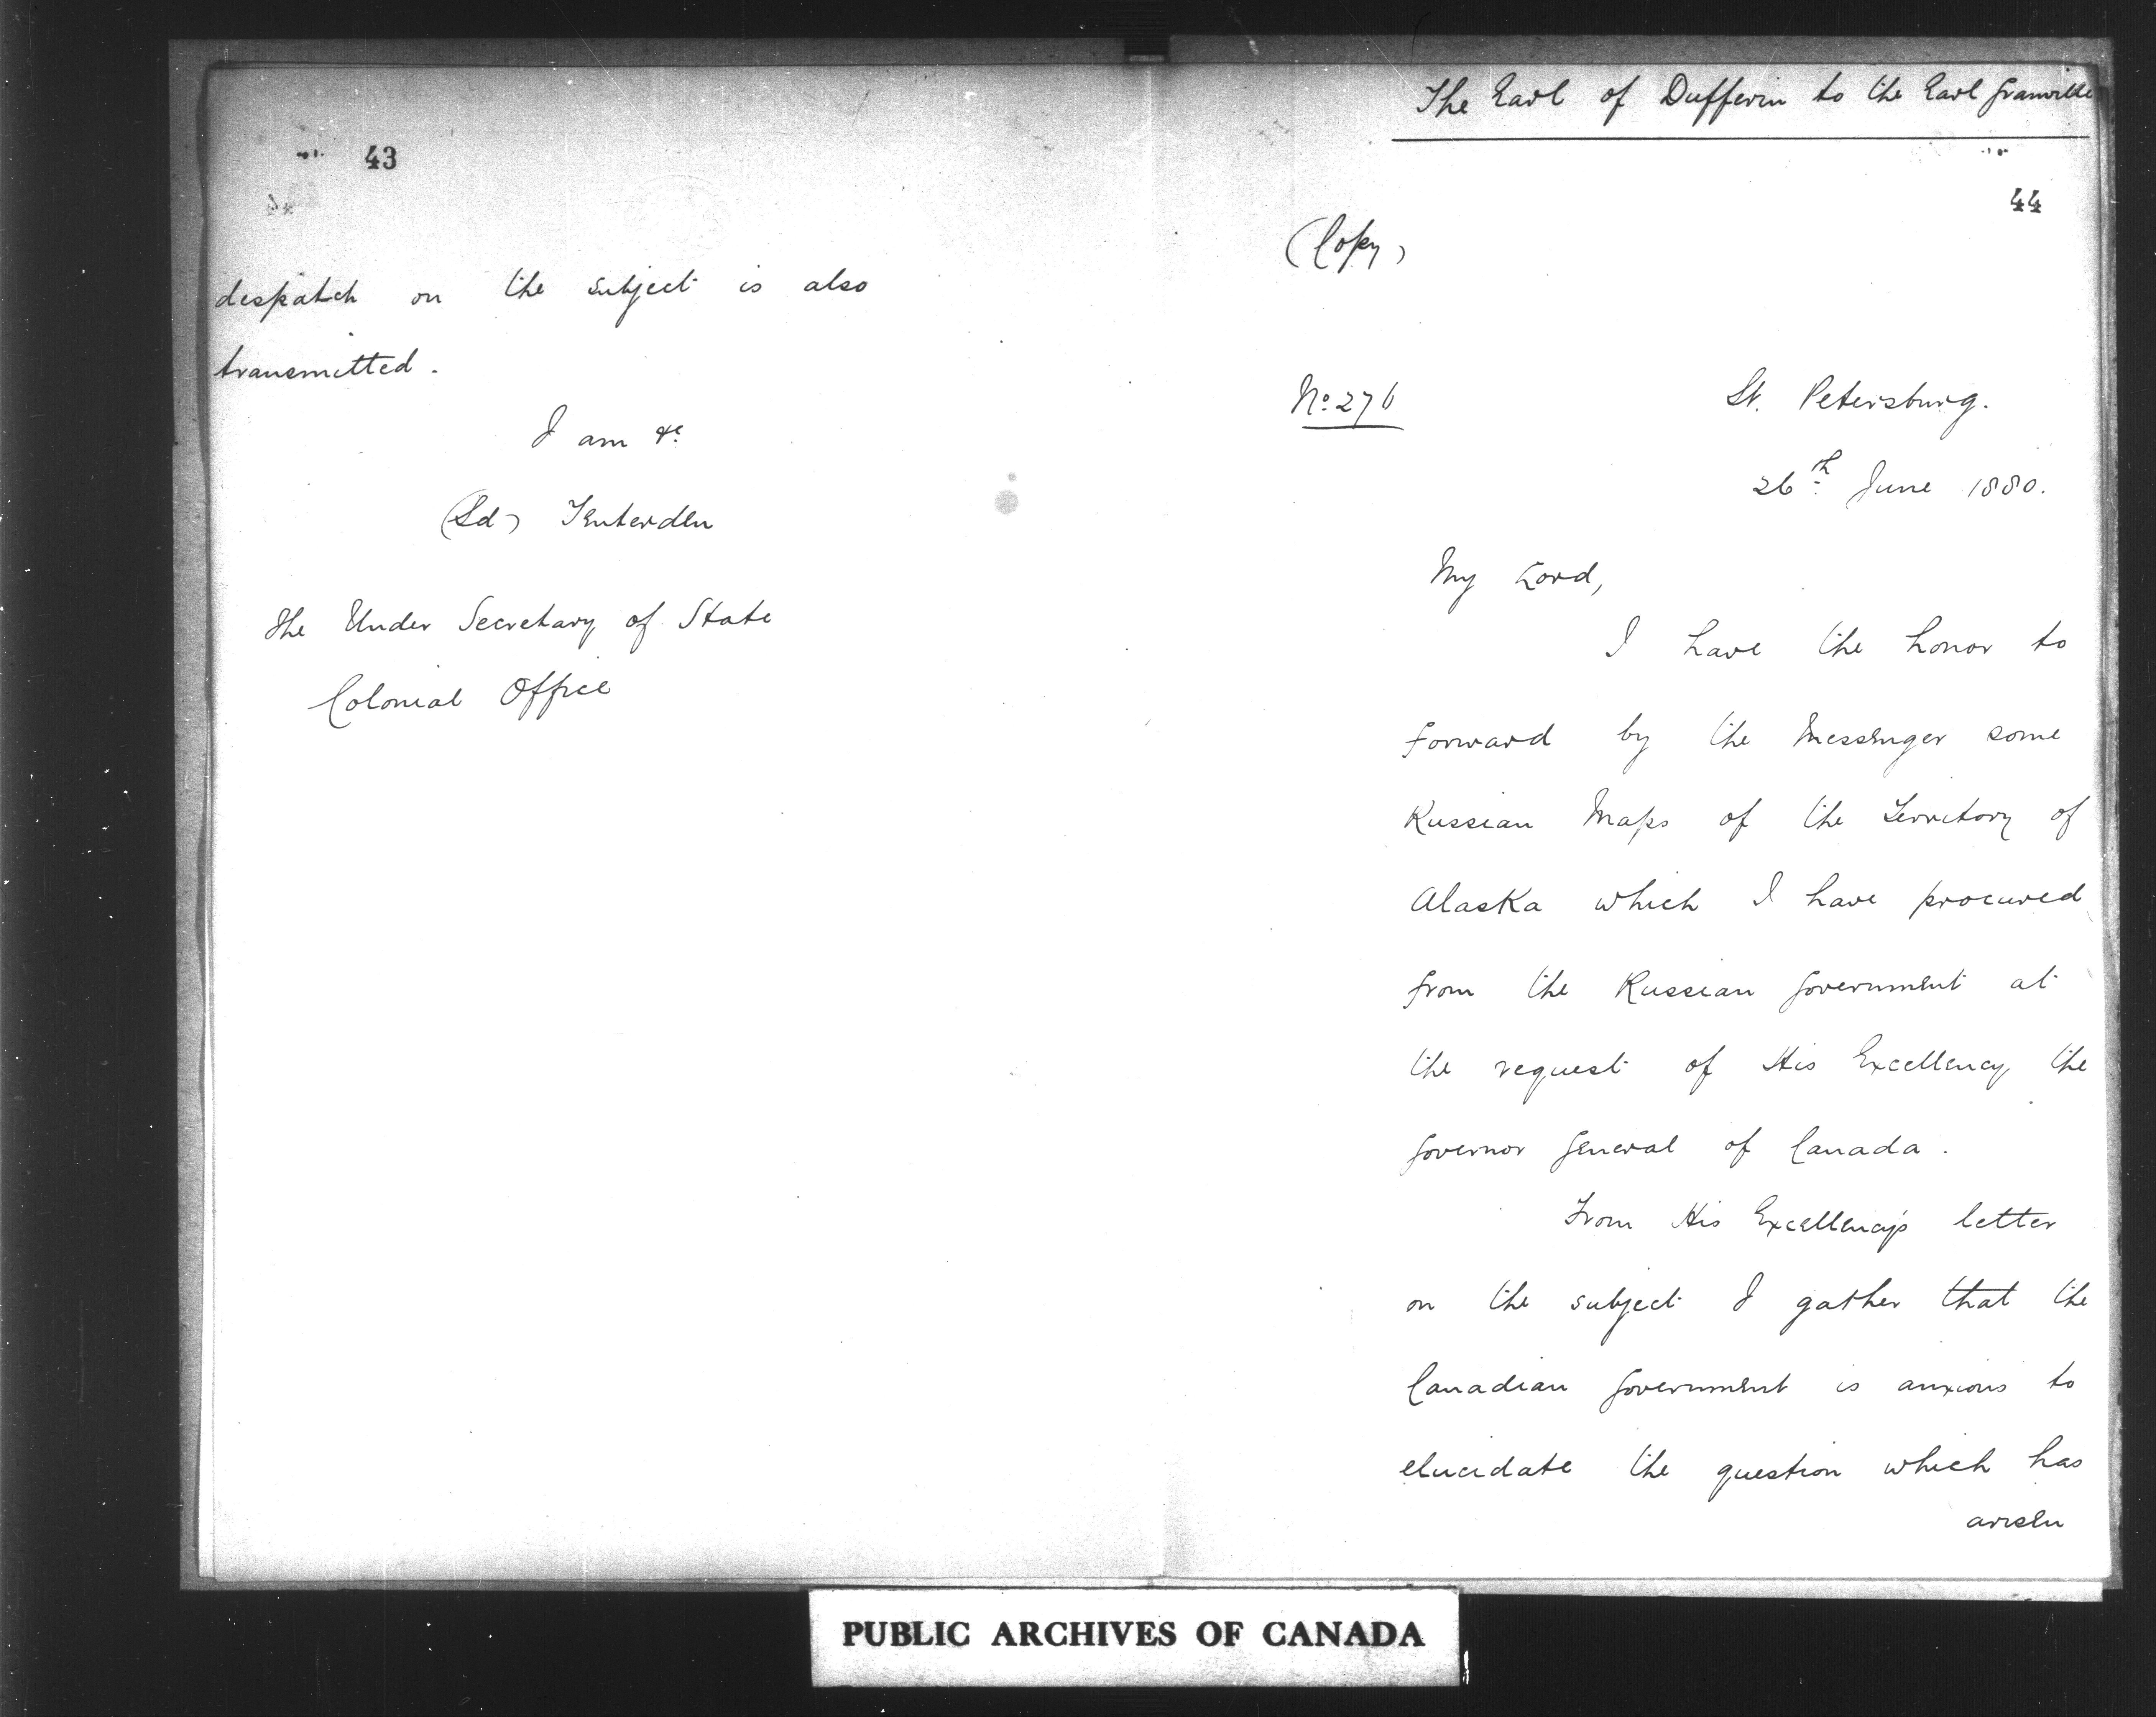 43
despatch on the subject is also
transmitted.
I am &c.
(Sd) Tenterden
The Under Secretary of State
Colonial Office
The Earl of Dufferin to the Earl Granville
44
(Copy)
No. 276
St. Petersburg.
26th June 1880.
My Lord,
I have the honor to
forward by the Messenger some
Russian Maps of the Territory of
Alaska which I have procured
from the Russian Government at
the request of His Excellency the
Governor General of Canada.
From His Excellency's letter
on the subject I gather that the
Canadian Government is anxious to
elucidate the question which has
arisen
PUBLIC ARCHIVES OF CANADA